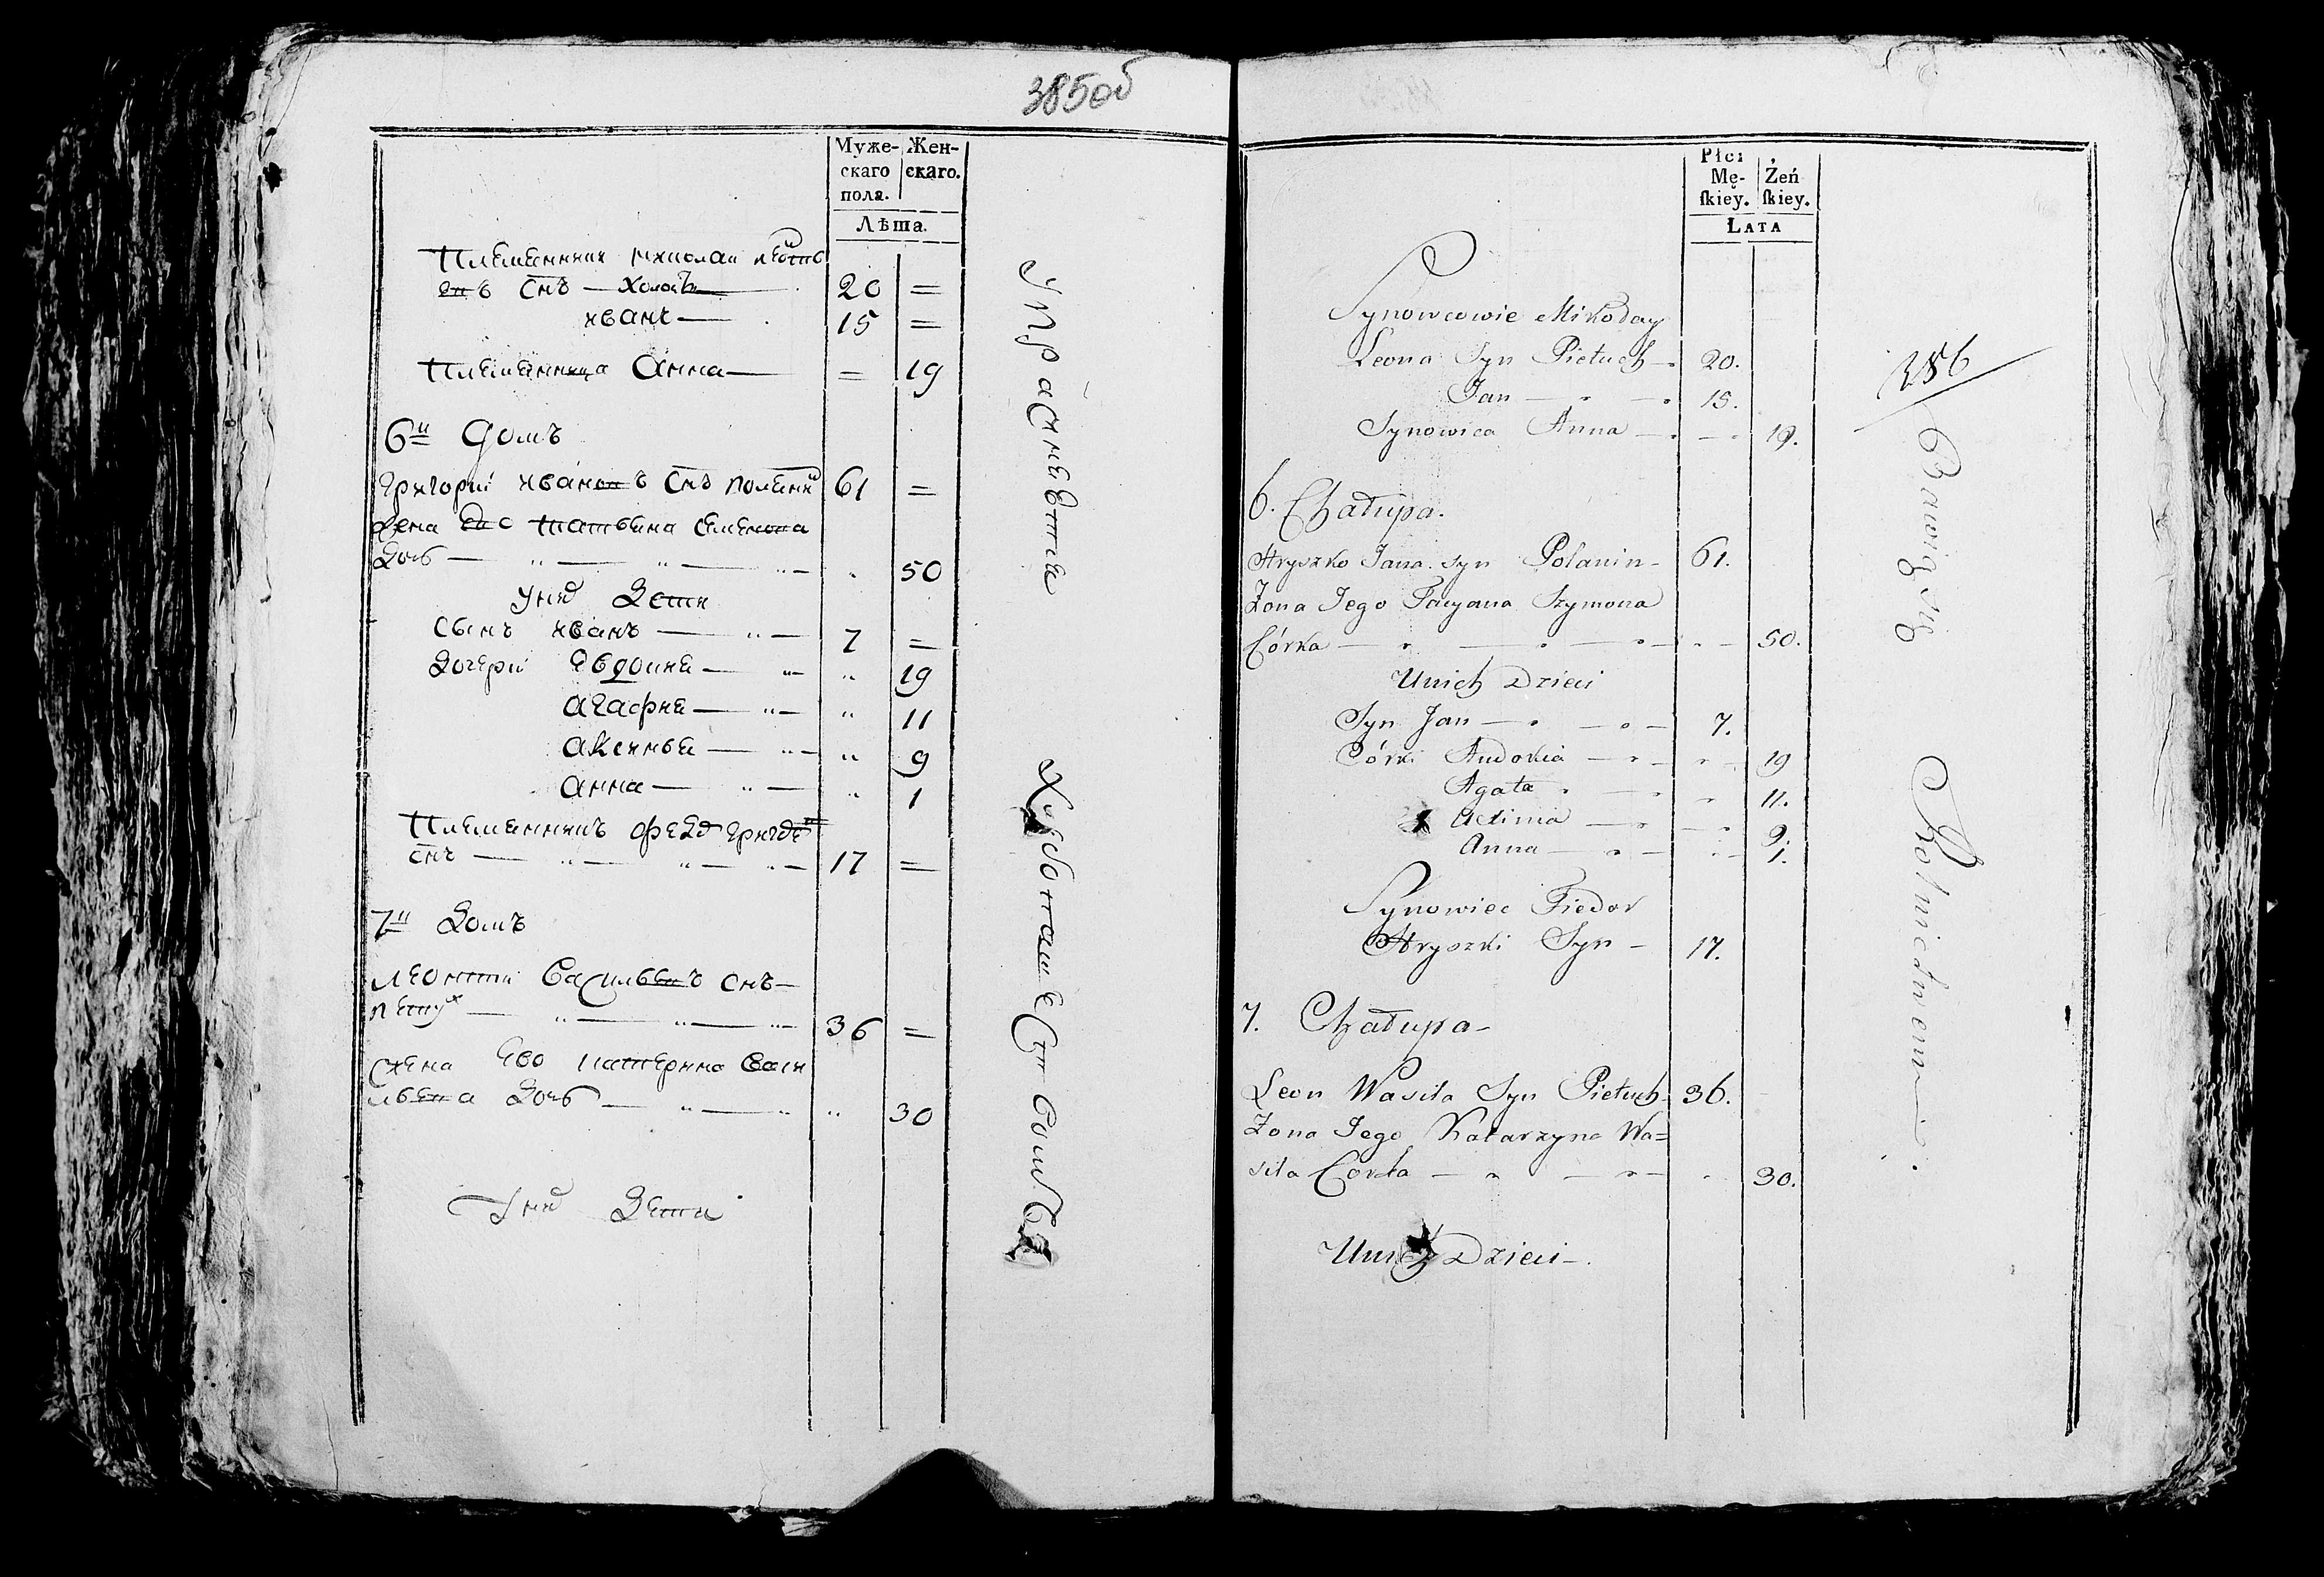 385об
Муже- Жен-
скаго скаго.
пола.
Лѣта.
Племянник Николаи
снъ — Холостъ — 20 =
иванъ — 15 =
Племянница Анна — = 19
6й Домъ
Григорий ивановъ снъ 61 =
жена ево татьяна семенова
дочь — " — " — " — " 50
У них Дети
Сынъ иванъ — " — 7 =
Дочери Евдокия — " — " 19
агафия — " — " 11
аксинья — " — " 9
анна — " — " 1
Племянникъ
снъ — " — " — " — 17 =
7й Домъ
леонтий Васильевъ снъ —
петух — " — " — " — 36 =
жена ево катерина Васи
льева Дочь — " — " " 30
У них Дети
Упражняется
Хлебопашеством
Płci
Mę- Żeń
ſkiey. ſkiey.
LATA
Synowcowie Mikołay
Leona Syn Pietuch — 20.
Jan — " — " 15.
Synowica Anna — " — " 19.
6. Chałupa.
Hryszko Jana syn Polanin — 61.
Żona Jego Tacyana Szymona
Córka — " — " — " — " — 50.
Unich Dzieci
Syn Jan — " — " — 7.
Córki Audokia — " — " — 19
Agata " — " " 11.
Acsinia — " — " 9.
Anna — " — " — 1.
Synowiec Fiedor
Hryszki Syn — 17.
7. Chałupa —
Leon Wasila Syn Pietuch — 36.
Żona Jego Katarzyna Wa=
sila Corka — " — " — " 30.
Unich Dzieci —.
386
Bawią się
Rolnictwem